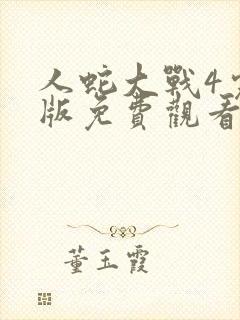 人蛇大戰4
版免費觀看
董玉霞